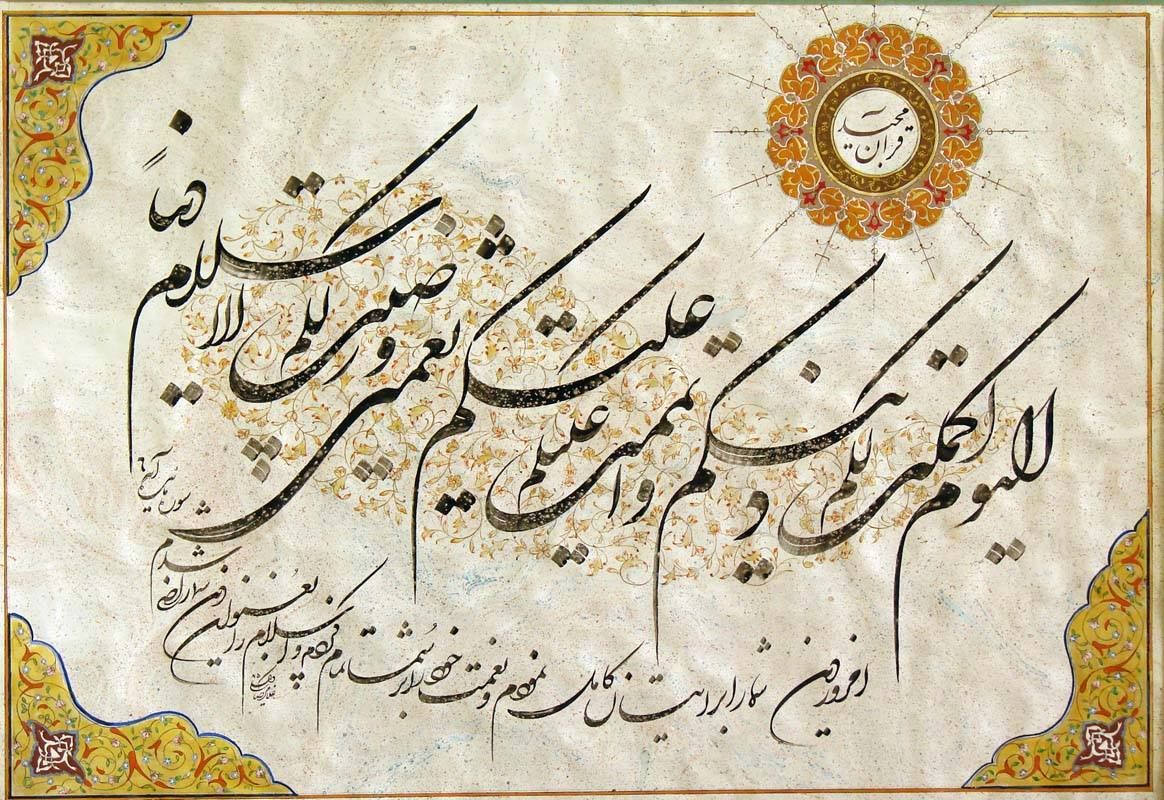 قرآن مجید
الیوم اکملت لکم دینکم و اتممت علیکم نعمتی و رضیت لکم الاسلام دیناً
امروز دین شما را برایتان کامل نمودم و نعمت خود را بر شما تمام کردم و اسلام را بعنوان دین شما راضی شدم
سوره مائده آیه